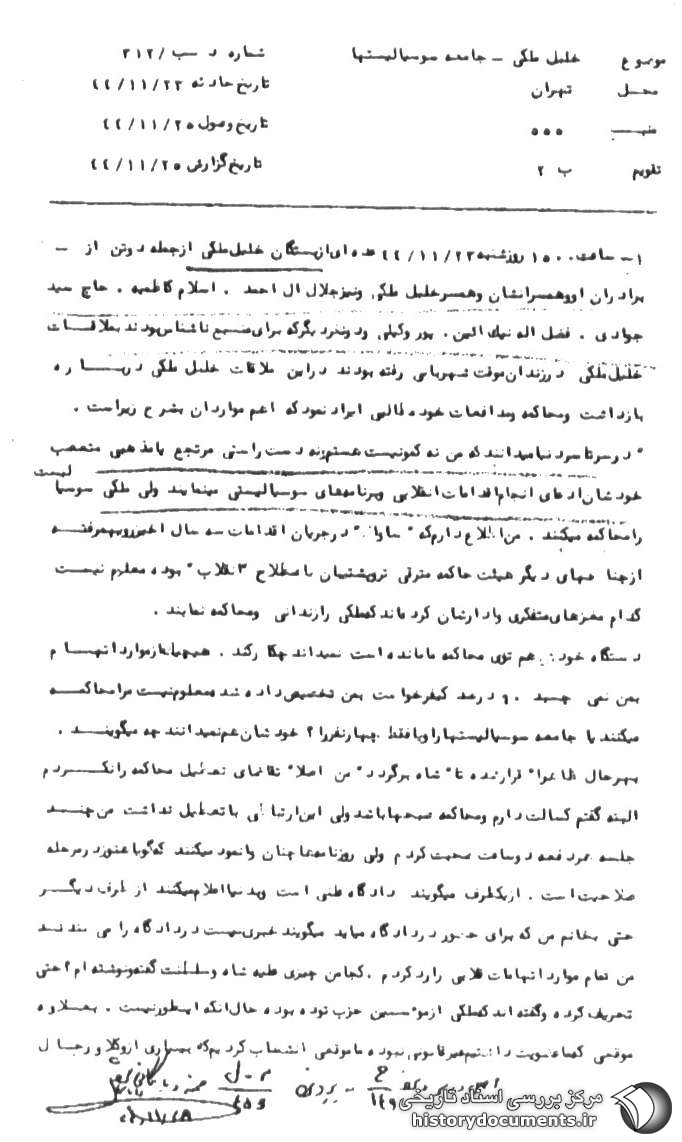 موضوع خلیل ملکی - جامعه سوسیالیستها شماره د سب /۳۱۲
محل تهران تاریخ حادثه ۴۴/۱۱/۲۳
منبع ۵۵۵ تاریخ وصول ۴۴/۱۱/۲۵
تقویم ب ۲ تاریخ گزارش ۴۴/۱۱/۲۵
۱- ساعت ۱۵۰۰ روز شنبه ۴۴/۱۱/۲۳ عده ای از بستگان خلیل ملکی از جمله دو تن از -
برادران او و همسرانشان و همسر خلیل ملکی و نیز جلال ال احمد . اسلام کاظمیه . حاج سید
جوادی . فضل اله نیک ائین . پور وکیلی و دو نفر دیگر که برای منبع ناشناس بودند بملاقات
خلیل ملکی در زندان موقت شهربانی رفته بودند در این ملاقات خلیل ملکی درباره
بازداشت و محاکمه و مدافعات خود مطالبی ایراد نمود که اعم موارد ان بشرح زیر است .
" در سرتاسر دنیا میدانند که من نه کمونیست هستم نه دست راستی مرتجع یا مذهبی متعصب
خودشان ادعای انجام اقدامات انقلابی و برنامه‌های سوسیالیستی مینمایند ولی ملکی سوسیا لیست
را محاکمه میکنند . من اطلاع دارم که " ساواک " در جریان اقدامات سه سال اخیر رویهمرفته
از جناحهای دیگر هیئت حاکمه مترقی تر و پشتیبان باصطلاح " انقلاب " بوده معلوم نیست
کدام مغزهای متفکری وادارشان کرده‌اند که ملکی را زندانی و محاکمه نمایند .
دستگاه خودش هم توی محاکمه ما مانده است نمیداند چکار کند . هیچیک از موارد اتهام
بمن نمی چسبد . و درصد کیفرخواست بمن تخصیص داده شده معلوم نیست مرا محاکمه
میکنند یا جامعه سوسیالیستها را و یا فقط چهار نفر را ؟ خودشان هم نمیدانند چه میگویند .
بهرحال ظاهرا " قرار شده تا " شاه برگردد " من اصلا " تقاضای تعطیل محاکمه را نکردم
البته گفتم کسالت دارم و محاکمه صبحها باشد ولی این ارتباطی با تعطیل نداشت من چند
جلسه هر دفعه دو ساعت صحبت کردم ولی روزنامه‌ها چنان وانمود میکنند که گویا هنوز در مرحله
صلاحیت است . از یکطرف میگویند دادگاه علنی است و بدنیا اعلام میکنند از طرف دیگر
حتی بخانم من که برای حضور در دادگاه میاید میگویند خبری نیست در دادگاه را می بندند
من تمام موارد اتهامات قلابی را رد کردم . کجا من چیزی علیه شاه و سلطنت گفته و نوشته ام ؟ حتی
تحریف کرده و گفته اند که ملکی از موسسین حزب توده بوده حال انکه اینطور نیست . بعلاوه
موقعی که ما عضویت داشتیم غیرقانونی نبوده ما موقعی انشعاب کردیم که بسیاری از وکلا و رجال
مرکز بررسی اسناد تاریخی
historydocuments.ir